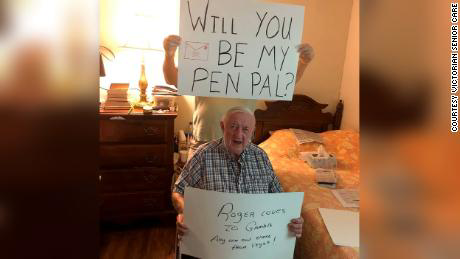 WILL YOU
BE MY
PEN PAL?
ROGER LOVES
TO GAMBLE
Any one out there
from Vegas!
COURTESY VICTORIAN SENIOR CARE